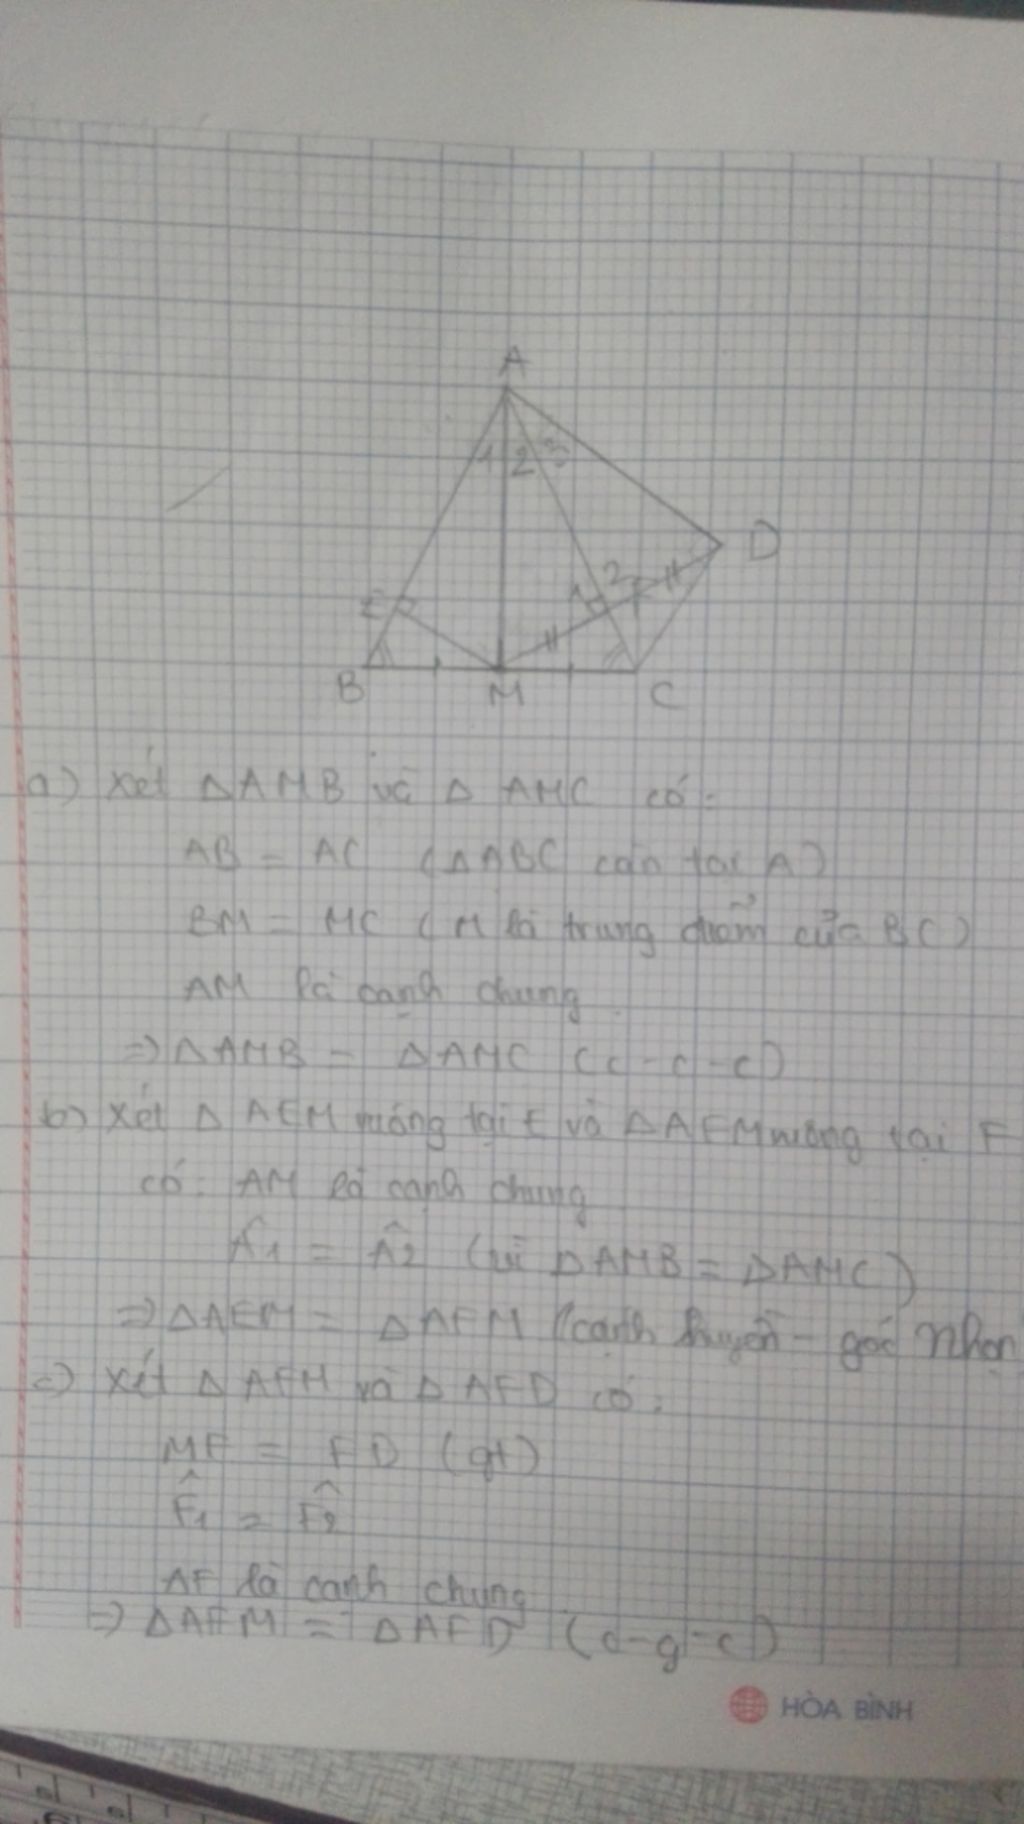 A
1 2 3
D
E
1 2 F
B M C
a) Xét ΔAMB và ΔAMC có:
AB = AC (ΔABC cân tại A)
BM = MC (M là trung điểm của BC)
AM là cạnh chung
=> ΔAMB = ΔAMC (c-c-c)
b) Xét ΔAEM vuông tại E và ΔAFM vuông tại F
có: AM là cạnh chung
Â1 = Â2 (vì ΔAMB = ΔAMC)
=> ΔAEM = ΔAFM (cạnh huyền - góc nhọn
c) Xét ΔAFM và ΔAFD có:
MF = FD (gt)
F̂1 = F̂2
AF là cạnh chung
=> ΔAFM = ΔAFD (c-g-c)
HÒA BÌNH